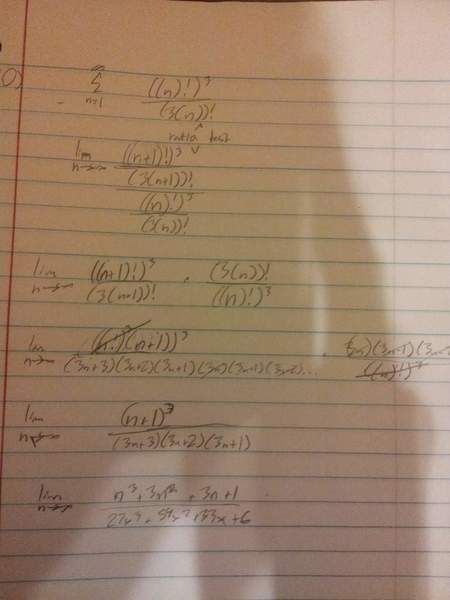 0) ∞ Σ n=1 ((n)!)^3 / (3(n))!
ratio test
lim n→∞ ((n+1)!)^3 / (3(n+1))! / ((n)!)^3 / (3(n))!
lim n→∞ ((n+1)!)^3 / (3(n+1))! · (3(n))! / ((n)!)^3
lim n→∞ (n!)(n+1))^3 / (3n+3)(3n+2)(3n+1)(3n)(3n-1)(3n-2)... · 3n)(3n-1)(3n- / ((n)!)^3
lim n→∞ (n+1)^3 / (3n+3)(3n+2)(3n+1)
lim n→∞ n^3 + 3n^2 + 3n + 1 / 27x^3 + 54x^2 + 33x + 6